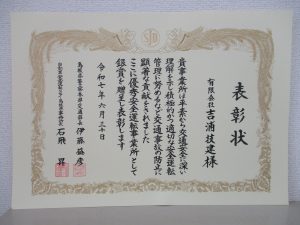 表彰状
有限会社吉浦技建様
貴事業所は平素から交通安全に深い
理解を示し積極的かつ適切な安全運転
管理に努めるなど交通事故の防止に
顕著な貢献をされました
ここに優秀安全運転事業所として
銀賞を贈呈し表彰します
令和七年六月三十日
鳥取県警察本部交通部長 伊藤
自動車安全運転センター鳥取県事務所長 石飛 昇